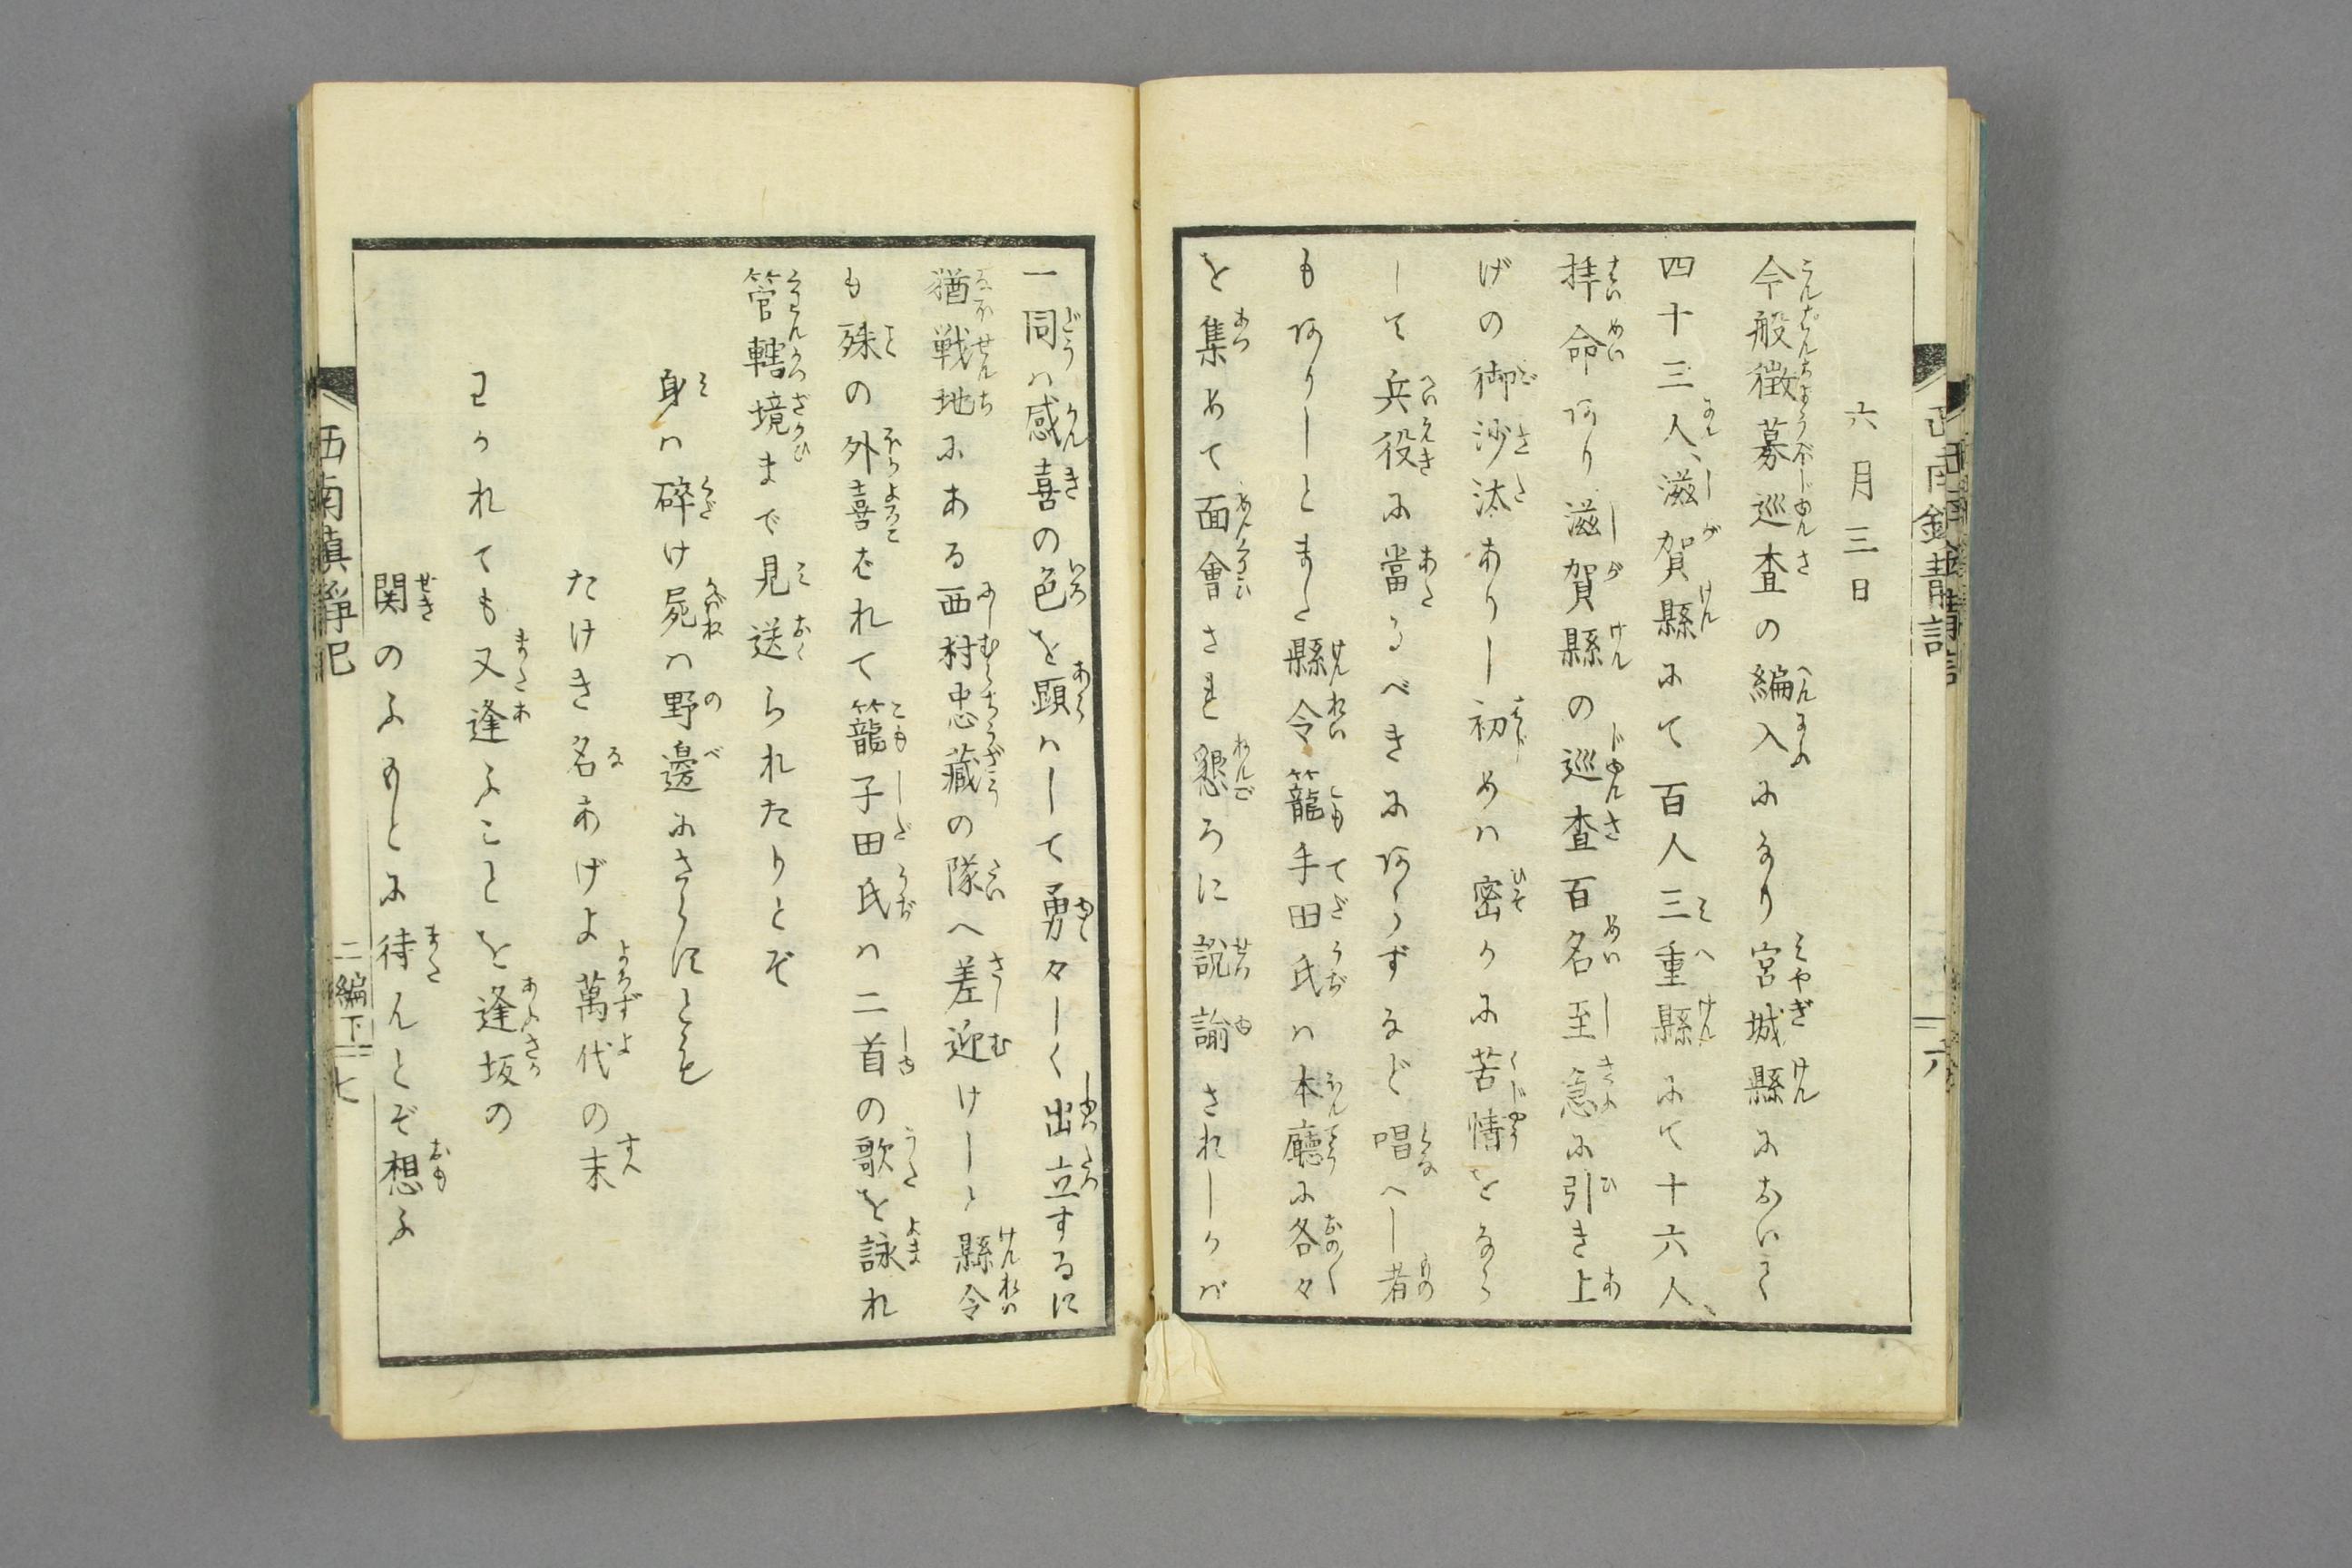 六月三日
今般徴募巡査の編入になり宮城縣において
四十三人、滋賀縣にて百人三重縣にて十六人、
拝命あり滋賀縣の巡査百名至急に引き上
げの御沙汰ありし初めハ密かに苦情をなら
して兵役に當るべきにあらずなど唱へし者
もありしとまた縣令籠手田氏ハ本廳に各々
を集めて面會され懇ろに説諭されしかバ
一同ハ感喜の色を顕ハして勇々しく出立するに
猶戦地にある西村忠藏の隊へ差迎けしゝ縣令
も殊の外喜ばれて籠子田氏ハ二首の歌を詠れ
管轄境まで見送られたりとぞ
身ハ碎け屍ハ野邊にさらすとも
たけき名あげよ萬代の末
わかれても又逢ふことを逢坂の
関のふもとに待んとぞ想ふ
西南鎮静記
二編下
七